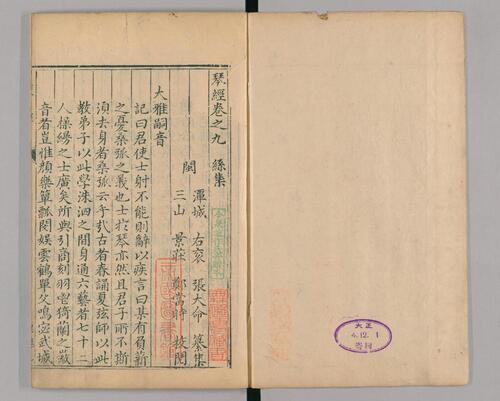 琴經卷之九 絲集
潭城 右袞 張大命 纂集
閩
三山 景莊 鄭當時 校閱
大雅嗣音
記曰君使士射不能則辭以疾言曰某有負薪
之憂桑弧之義也士於琴亦然且君子所不撕
須去身者桑弧云乎哉古者春誦夏弦師以此
教弟子以此學洙泗之間身通六藝者七十二
人操縵之士廣矣所與引商刻羽電猗蘭之藏
音者豈惟顏樂簞瓢閔娛雲鶴單父鳴宓武城
大正
4.12.1
寄附